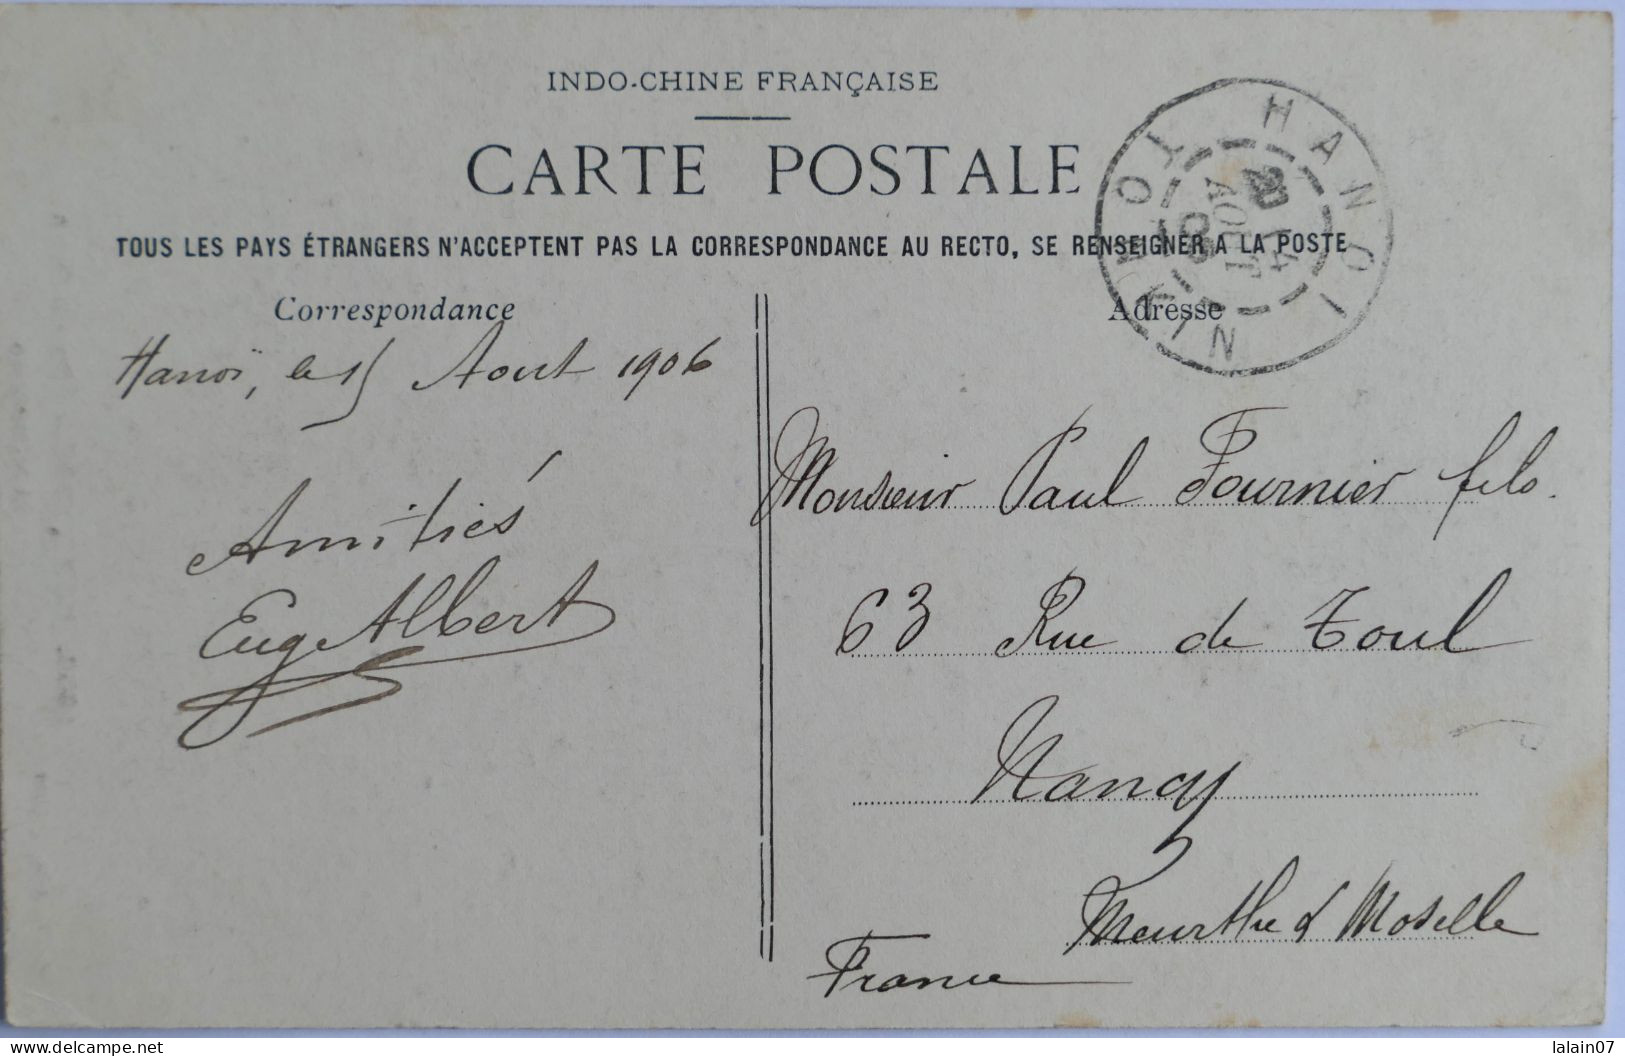 INDO-CHINE FRANÇAISE
CARTE POSTALE
TOUS LES PAYS ÉTRANGERS N'ACCEPTENT PAS LA CORRESPONDANCE AU RECTO, SE RENSEIGNER A LA POSTE
HANOI
TONKIN
AOUT
Correspondance
Hanoï, le 15 Aout 1906
Amitiés
Eug Albert
Adresse
Monsieur Paul Fournier fils.
63 Rue de Toul
Nancy
Meurthe & Moselle
France
www.delcampe.net
lalain07